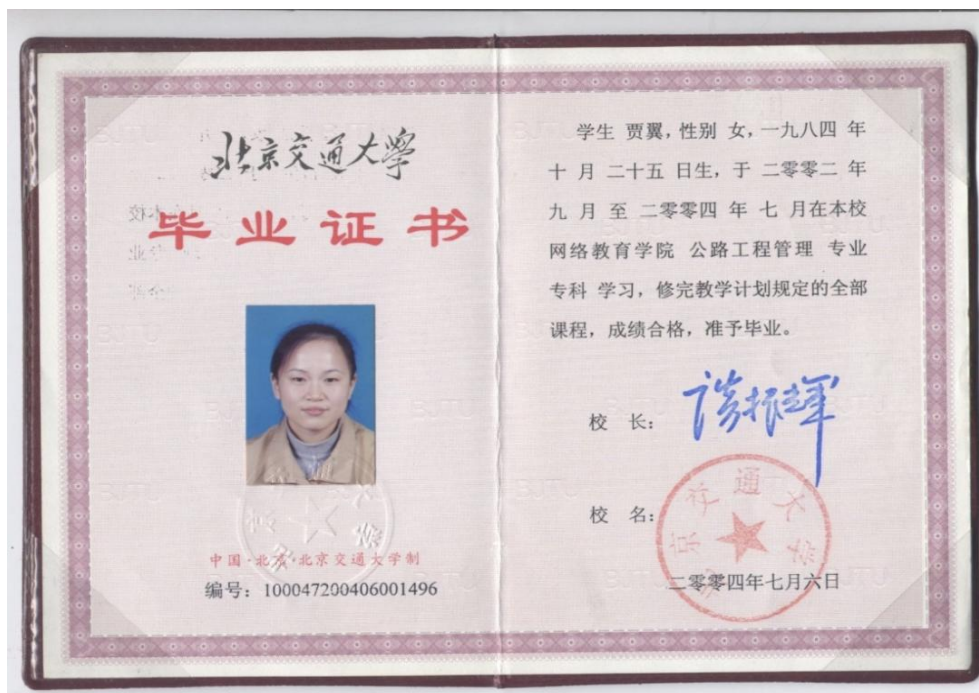 北京交通大學
毕业证书
中国·北京·北京交通大学制
编号：100047200406001496
学生 贾翼，性别 女，一九八四 年
十 月 二十五 日生，于 二零零二 年
九 月 至 二零零四 年 七 月在本校
网络教育学院 公路工程管理 专业
专科 学习，修完教学计划规定的全部
课程，成绩合格，准予毕业。
校 长：
谈振辉
校 名：
北京交通大学
二零零四年七月六日